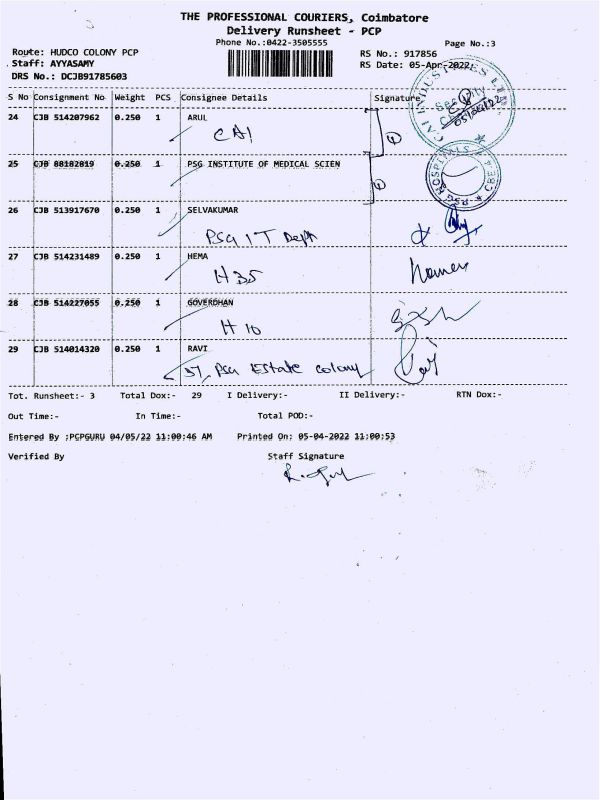 THE PROFESSIONAL COURIERS, Coimbatore
Delivery Runsheet - PCP
Phone No.:0422-3505555
Page No.:3
Route: HUDCO COLONY PCP
RS No.: 917856
Staff: AYYASAMY
RS Date: 05-Apr-2022
DRS No.: DCJB91785603
S No Consignment No Weight PCS Consignee Details Signature
24 CJB 514207962 0.250 1 ARUL
CAI
25 CJB 88182819 0.250 1 PSG INSTITUTE OF MEDICAL SCIEN
26 CJB 513917670 0.250 1 SELVAKUMAR
PSG IT Dept
27 CJB 514231489 0.250 1 HEMA
H 35
28 CJB 514227055 0.250 1 GOVERDHAN
H 10
29 CJB 514014320 0.250 1 RAVI
37, PSG Estate colony
CAI INDUSTRIES LTD
Security
05/04/22
PSG HOSPITALS
CBE-4
Tot. Runsheet:- 3 Total Dox:- 29 I Delivery:- II Delivery:- RTN Dox:-
Out Time:- In Time:- Total POD:-
Entered By ;PCPGURU 04/05/22 11:00:46 AM Printed On; 05-04-2022 11:00:53
Verified By Staff Signature